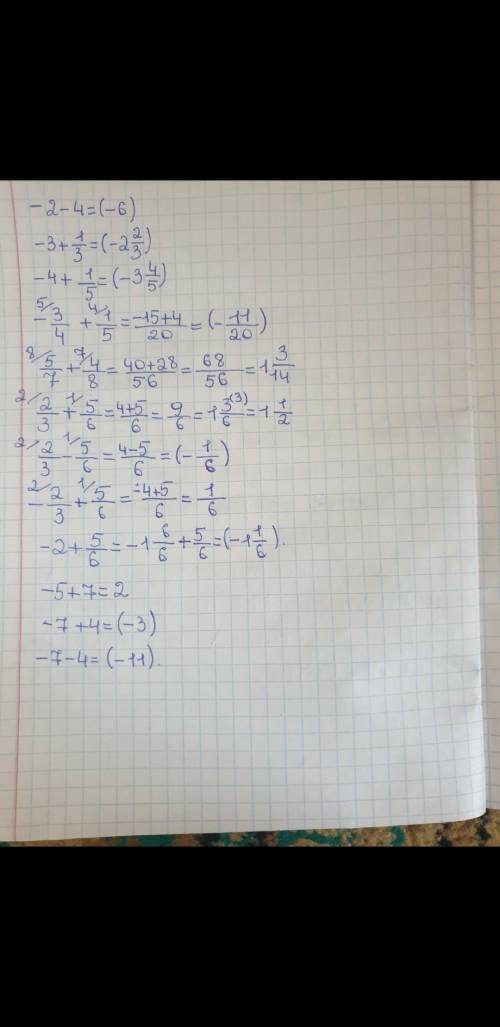 -2-4=(-6)
-3+1/3=(-2 2/3)
-4+1/5=(-3 4/5)
5/ -3/4 + 4/ 1/5 = -15+4/20 = (-11/20)
8/ 5/7 + 7/ 4/8 = 40+28/56 = 68/56 = 1 3/14
2/ 2/3 + 1/ 5/6 = 4+5/6 = 9/6 = 1 3/6 (3) = 1 1/2
2/ 2/3 - 1/ 5/6 = 4-5/6 = (-1/6)
2/ -2/3 + 1/ 5/6 = -4+5/6 = 1/6
-2+5/6 = -1 6/6 + 5/6 = (-1 1/6).
-5+7=2
-7+4=(-3)
-7-4=(-11).